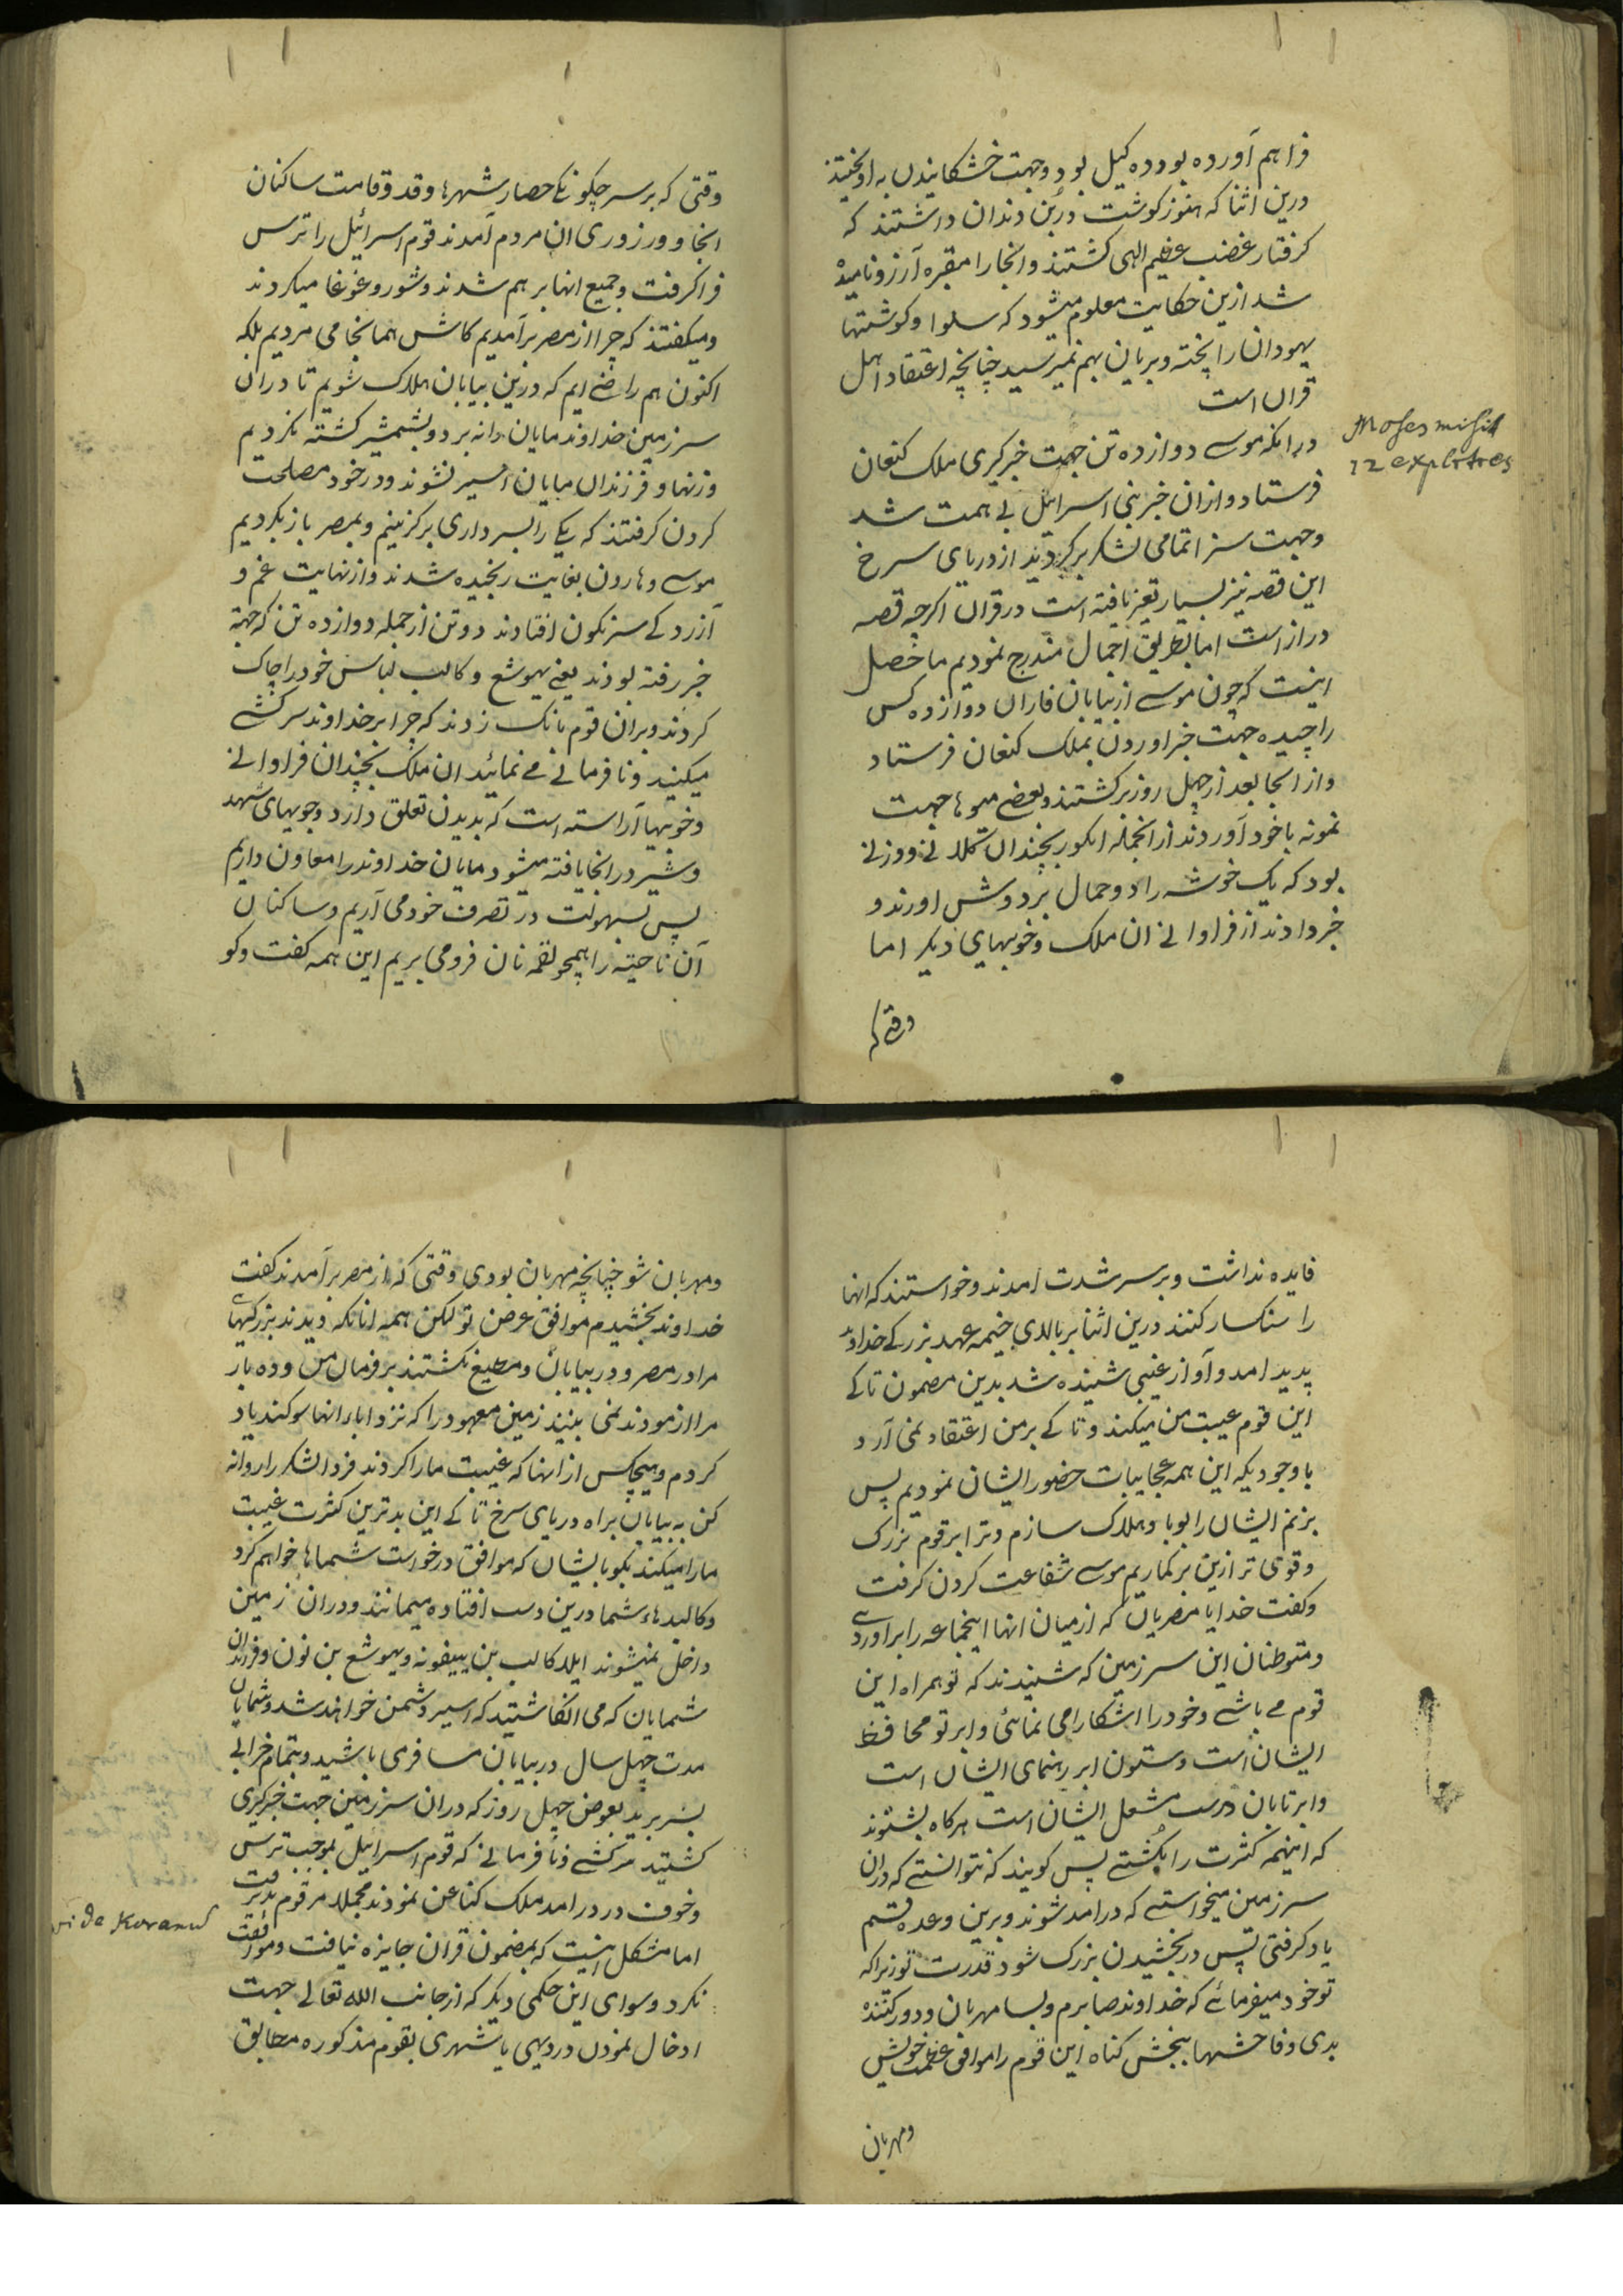 فراهم آورده بود ده کیل بود و جهت خشکانیدن به اویختند
درین اثنا که هنوز کوشت در بن دندان داشتند که
کرفتار غضب عظیم الهی کشتند و انجا را مقبره آرزو نامیده
شد ازین حکایت معلوم میشود که سلوا و کوشتها
یهودان را پخته و بریان بهم نمیرسید چنانچه اعتقاد اهل
قران است
Moses misit
12 explktres
در انکه موسے دوازده تن جهت خبرکیری ملک کنعان
فرستاد و ازان خبر بنی اسرائیل بے همت شد
و جهت سزا تمامی لشکر برکردید از دریای سرخ
این قصه نیز بسیار تغیر یافته است در قران اکرچه قصه
دراز است اما بطریق اجمال مندرج نمودیم ما حصل
اینست که چون موسے از بیابان فاران دوازده کس
را چیده جهت خبر اوردن بملک کنعان فرستاد
و از انجا بعد از چهل روز برکشتند و بعضے میوها جهت
نمونه با خود آوردند از انجمله انکور بچندان کلانے و وزنے
بود که یک خوشه را دو حمال بر دوش اورند و
خبر دادند از فراوانے ان ملک و خوبیهای دیکر اما
وقتے که
وقتی که بر سر چکونکے حصار شهرها و قد و قامت ساکنان
انجا و ورزوری ان مردم آمدند قوم اسرائیل را ترس
فرا کرفت و جمیع انها بر هم شدند و شور و غوغا میکردند
و میکفتند که چرا از مصر برآمدیم کاش همانجا می مردیم بلکه
اکنون هم راضے ایم که درین بیابان هلاک شویم تا دران
سرزمین خداوند مایان را نه برد و بشمشیر کشته نکردیم
و زنها و فرزندان مایان اسیر نشوند و در خود مصلحت
کردن کرفتند که یکے را بسرداری برکزینیم و بمصر باز بکردیم
موسے و هارون بغایت رنجیده شدند و از نهایت غم و
آزردکے سرنکون افتادند دو تن از جمله دوازده تن که جهة
خبر رفته بودند یعنے یهوشع و کالب لباس خود را چاک
کردند و بران قوم بانک زدند که چرا بر خداوند سرکشے
میکنید و نافرمانے مے نمائید ان ملک بچندان فراوانے
و خوبیها آراسته است که بدیدن تعلق دارد و جویهای شهد
و شیر در انجا یافته میشود مایان خداوند را معاون داریم
پس بسهولت در تصرف خود می آریم و ساکنان
آن ناحیه را همچو لقمه نان فرو می بریم این همه کفت و کو
فایده نداشت و بر سر شدت امدند و خواستند که انها
را سنکسار کنند درین اثنا بر بالای خیمه عهد بزرکے خداوند
پدید امد و آواز غیبی شنیده شد بدین مضمون تا کے
این قوم غیبت من میکند و تا کے بر من اعتقاد نمی آرد
با وجودیکه این همه عجایبات حضور ایشان نمودیم پس
بزنم ایشان را بوبا و هلاک سازم و ترا بر قوم بزرک
و قوی تر ازین برکماریم موسے شفاعت کردن کرفت
و کفت خدایا مصریان که از میان انها اینجماعه را برآوردے
و متوطنان این سرزمین که شنیدند که تو همراه این
قوم مے باشے و خود را اشکارا می نمائی و ابر تو محافظ
ایشان است و ستون ابر رهنمای ایشان است
و ابر تابان در شب مشعل ایشان است هرکاه بشنوند
که اینهمه کثرت را بکشتے پس کویند که نتوانستے که دران
سرزمین میخواستے که درامد شوند و برین وعده قسم
یاد کرفتی پس در بخشیدن بزرک شود قدرت تو زیرا که
تو خود میفرمائے که خداوند صابرم و بسا مهربان و دور کننده
بدی و فاحشها ببخش کناه این قوم را موافق عظمت خویش
ومهربان
و مهربان شو چنانچه مهربان بودی وقتی که از مصر برآمدند کفت
خداوند بخشیدم موافق عرض تو لکن همه انانکه دیدند بزرکیهای
مرا در مصر و در بیابان و مطیع نکشتند بر فرمان من و ده بار
مرا ازمودند نمی بینند زمین معهود را که نزد اباء انها سوکند یاد
کردم و هیچکس از انها که غیبت ما را کردند فردا لشکر را روانه
کن به بیابان براه دریای سرخ تا کے این بدترین کثرت غیبت
ما را میکند بکو بایشان که موافق درخواست شماها خواهم کرد
و کالبدهاء شما درین دشت افتاده میمانند و دران زمین
داخل نمیشوند الا کالب بن ییفونه و یهوشع بن نون و فرزندان
شمایان که می انکاشتید که اسیر دشمن خواهند شد و شمایان
مدت چهل سال در بیابان مسافر می باشید و بتمام خرابے
بسر برید بعوض چهل روز که دران سرزمین جهت خبرکیری
کشتید سرکشے و نافرمانے که قوم اسرائیل بموجب ترس
و خوف در درامد ملک کناعن نمودند مجملا مرقوم
vide Koranus
اما مشکل اینست که بمضمون قران جایزه نیافت و موافقت
نکرد و سوای این حکمی دیکر که از جانب الله تعالے جهت
ادخال نمودن در دیهی یا شهری بقوم مذکوره مطابق